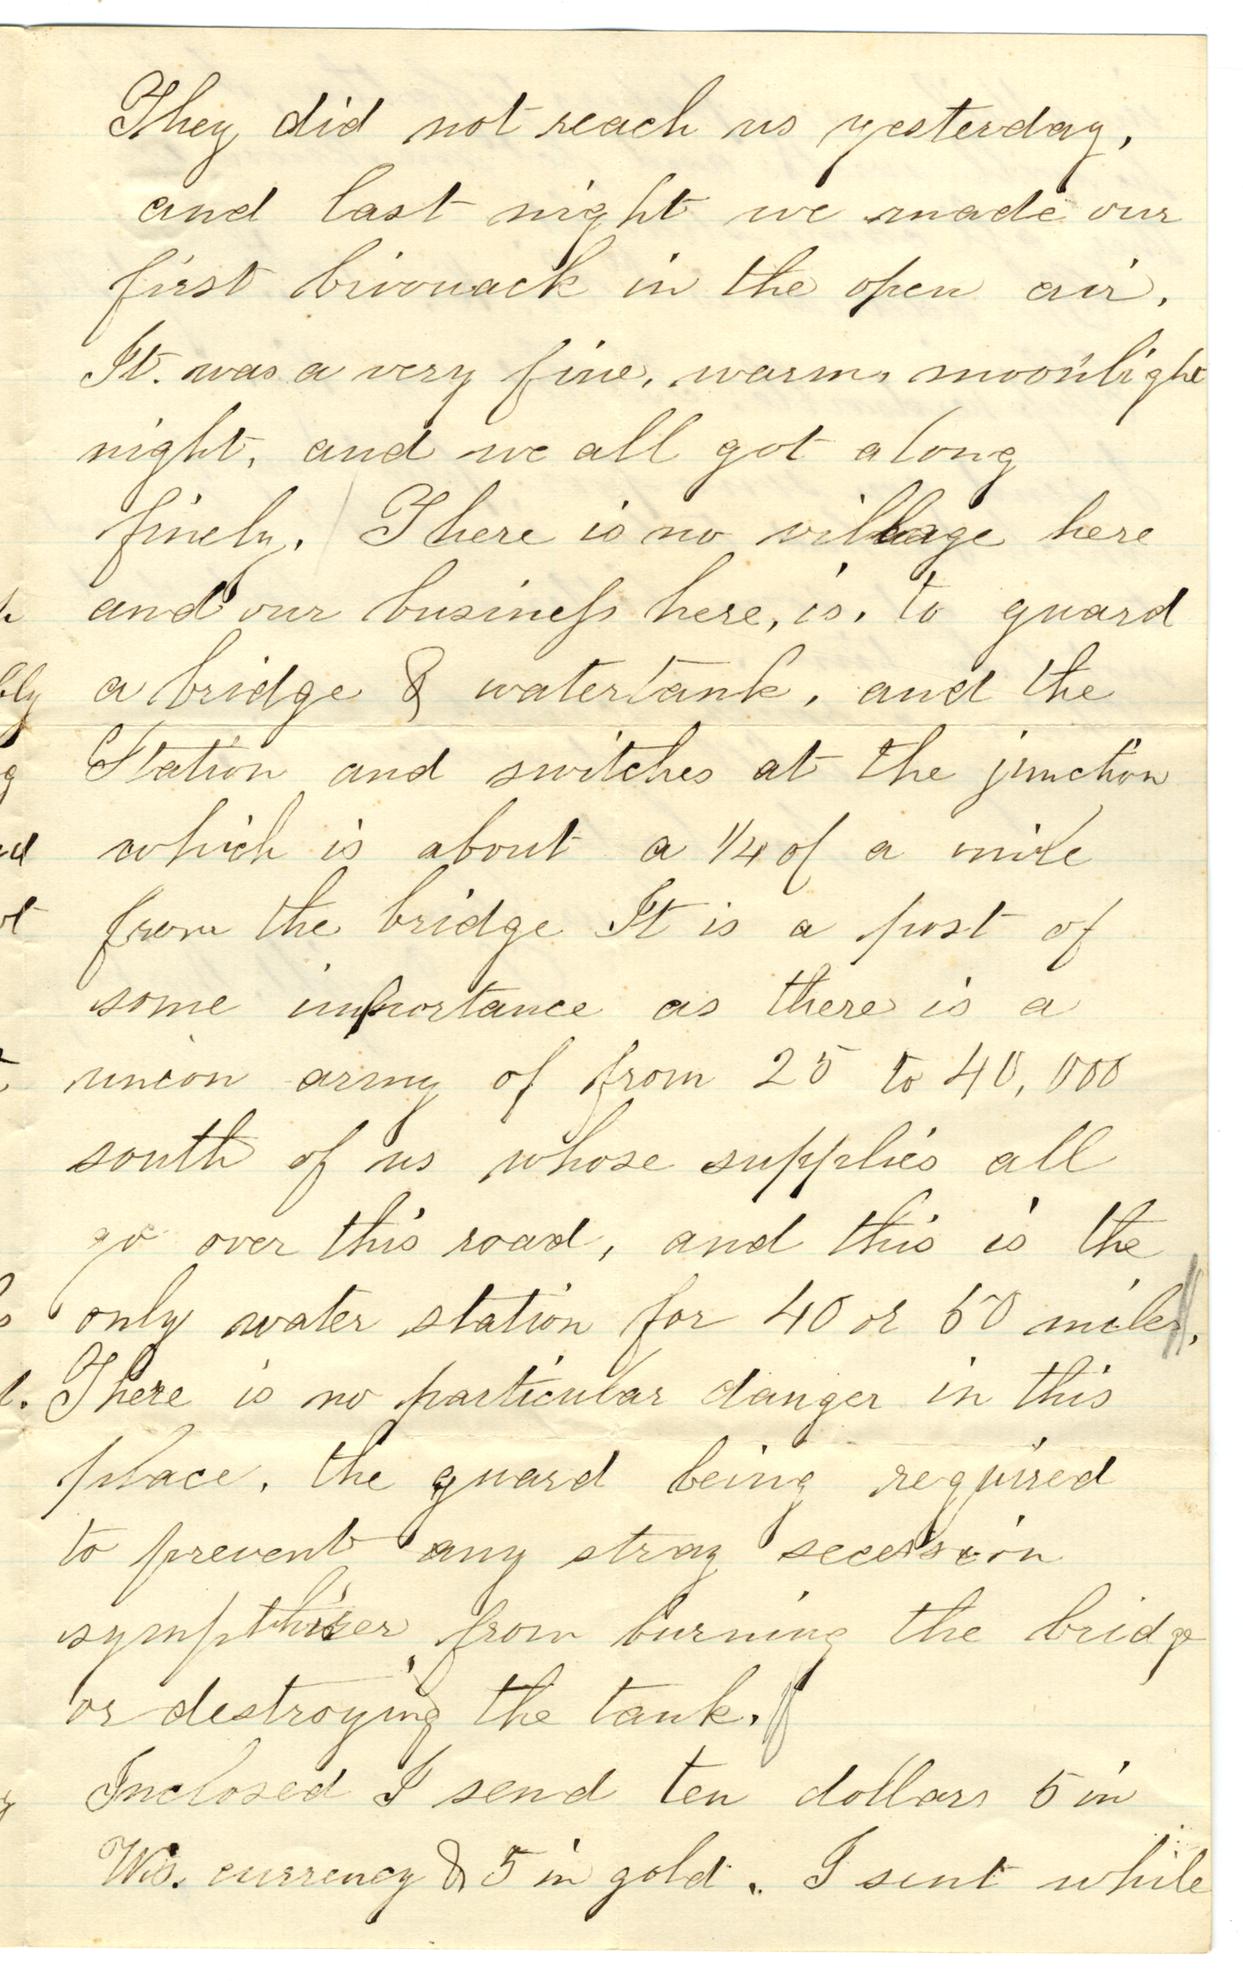 They did not reach us yesterday,
and last night we made our
first bivouack in the open air.
It was a very fine, warm, moonlight
night, and we all got along
finely. There is no village here
and our business here, is, to guard
a bridge & watertank, and the
Station and switches at the junction
which is about a 1/4 of a mile
from the bridge It is a post of
some importance as there is a
union army of from 25 to 40,000
south of us whose supplies all
go over this road, and this is the
only water station for 40 or 50 miles,
There is no particular danger in this
place, the guard being required
to prevent any stray secession
sympthiser from burning the bridge
or destroying the tank.
Inclosed I send ten dollars 5 in
Wis. currency & 5 in gold. I sent while